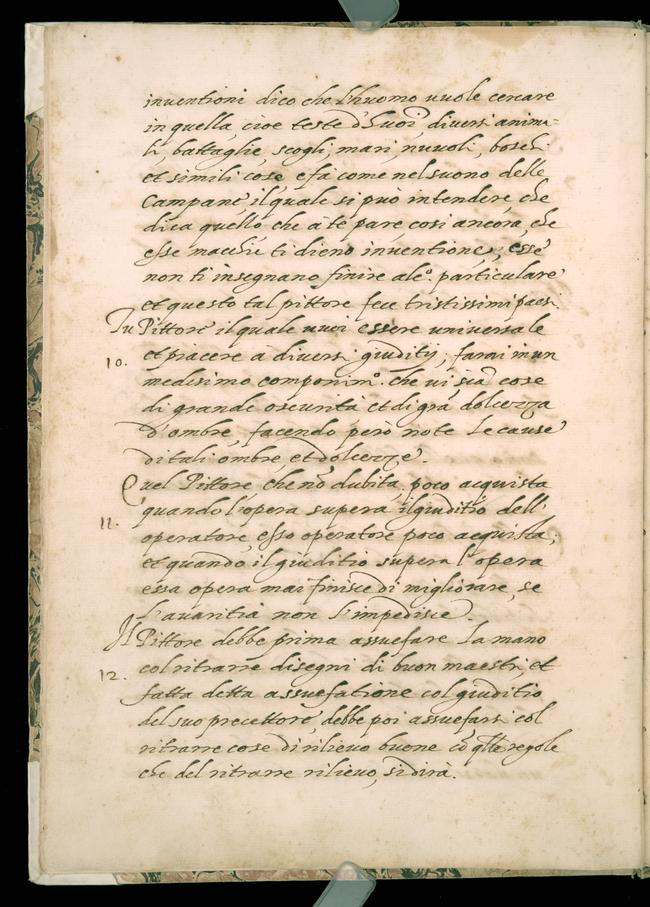 inventioni dico che l'huomo vuole cercare
in quella, cioe teste d'huoi, diversi anima-
li, battaglie, scogli, mari, nuvoli, boschi
et simili cose, e fa come nel suono delle
Campane, il quale si può intendere che
dica quello che à te pare cosi ancora, che
esse macchie ti dieno inventione, esse
non ti insegnano finire alcº. particulare
et questo tal pittore fece tristissimi paesi.
Tu Pittore il quale vuoi essere universale
et piacere à diversi giuditij, farai in un
10.
medesimo componimº. che vi sia cose
di grande oscurità et di grã dolcezza
d'ombre, facendo però note le cause
di tali ombre, et dolcezze.
Quel Pittore, che nõ dubita, poco acquista
quando l'opera supera il giuditio dell'
11.
operatore, esso operatore poco acquista,
et quando il giuditio supera l'opera
essa opera mai finisce di migliorare, se
l'avaritia non l'impedisce.
Il Pittore debbe prima assuefare la mano
col ritrarre disegni di buon maestri, et
12.
fatta detta assuefatione col giuditio
del suo precettore, debbe poi assuefarsi col
ritrarre cose di rilievo buone cõ qlle regole
che del ritrarre rilievo, si dirà.